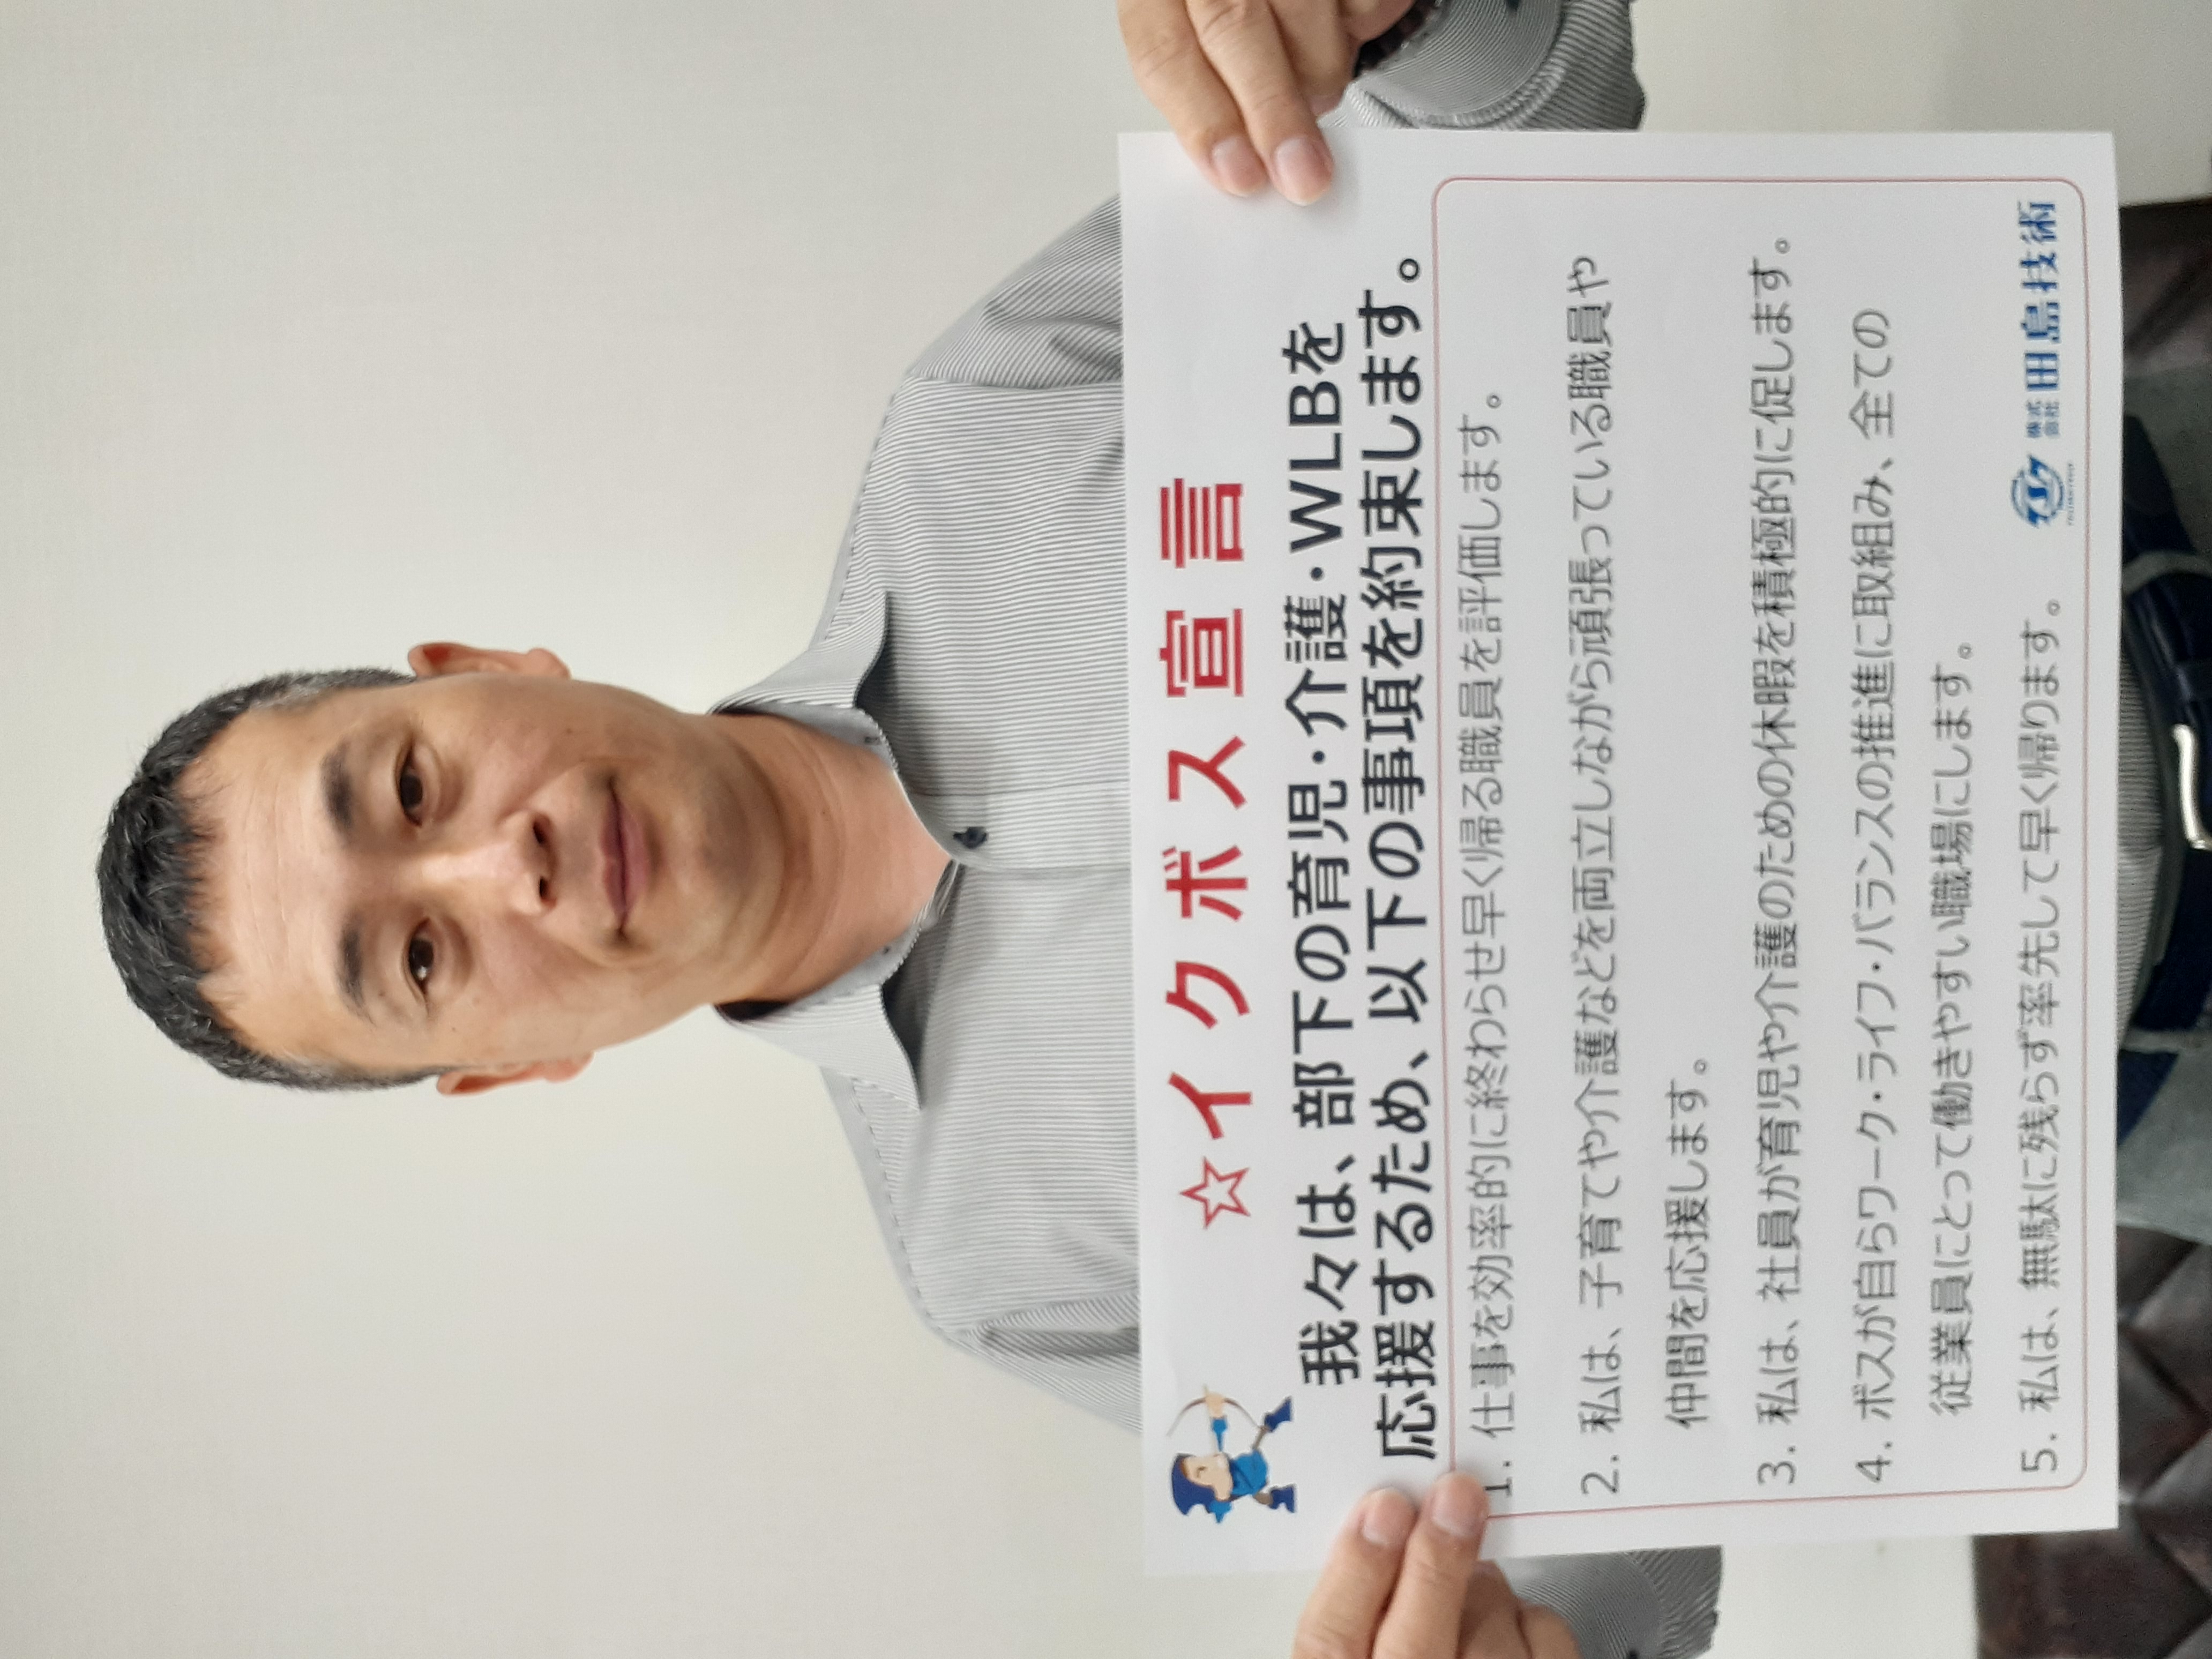 ☆イクボス宣言
我々は、部下の育児・介護・WLBを
応援するため、以下の事項を約束します。
1. 仕事を効率的に終わらせ早く帰る職員を評価します。
2. 私は、子育てや介護などを両立しながら頑張っている職員や
仲間を応援します。
3. 私は、社員が育児や介護のための休暇を積極的に促します。
4. ボスが自らワーク・ライフ・バランスの推進に取組み、全ての
従業員にとって働きやすい職場にします。
5. 私は、無駄に残らず率先して早く帰ります。
株式会社 田島技術